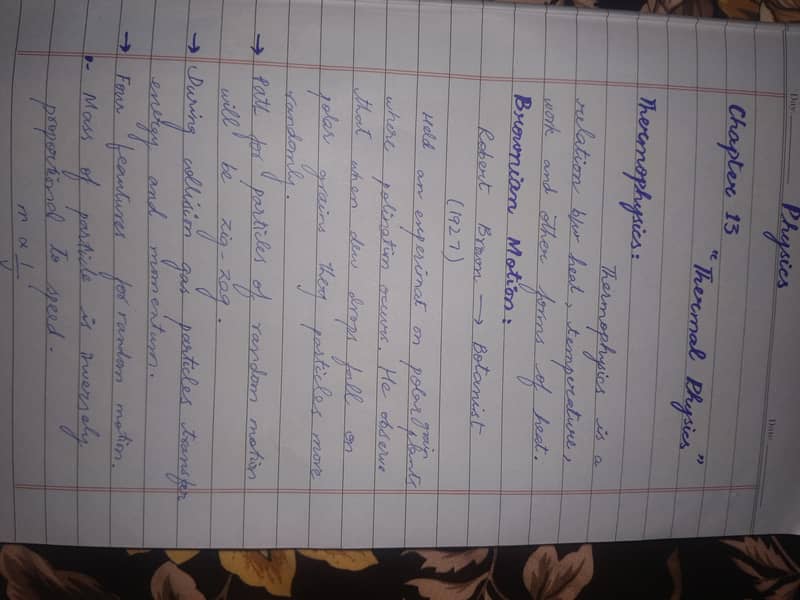 Day
Date
Physics
Chapter 13 "Thermal Physics"
Thermophysics:
Thermophysics is a
relation b/w heat, temperature,
work and other forms of heat.
Brownian Motion:
Robert Brown → Botanist
(1927)
Held an experimat on polar grain
plants
where polination occurs. He observe
that when dew drops fall on
polar grains they particles move
randomly.
→ Path for particles of random motion
will be zig-zag.
→ During collision gas particles transfer
energy and momentum.
→ Four features for random motion.
•- Mass of particle is inversely
proportional to speed.
m α 1/v